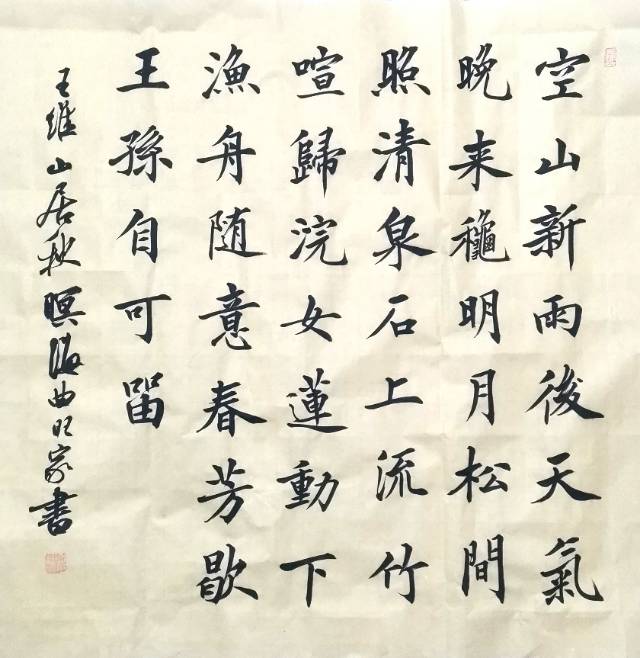 空山新雨後天氣
晚来龝明月松間
照清泉石上流竹
喧歸浣女蓮動下
漁舟随意春芳歇
王孫自可留
王維山居秋暝海曲旺家書